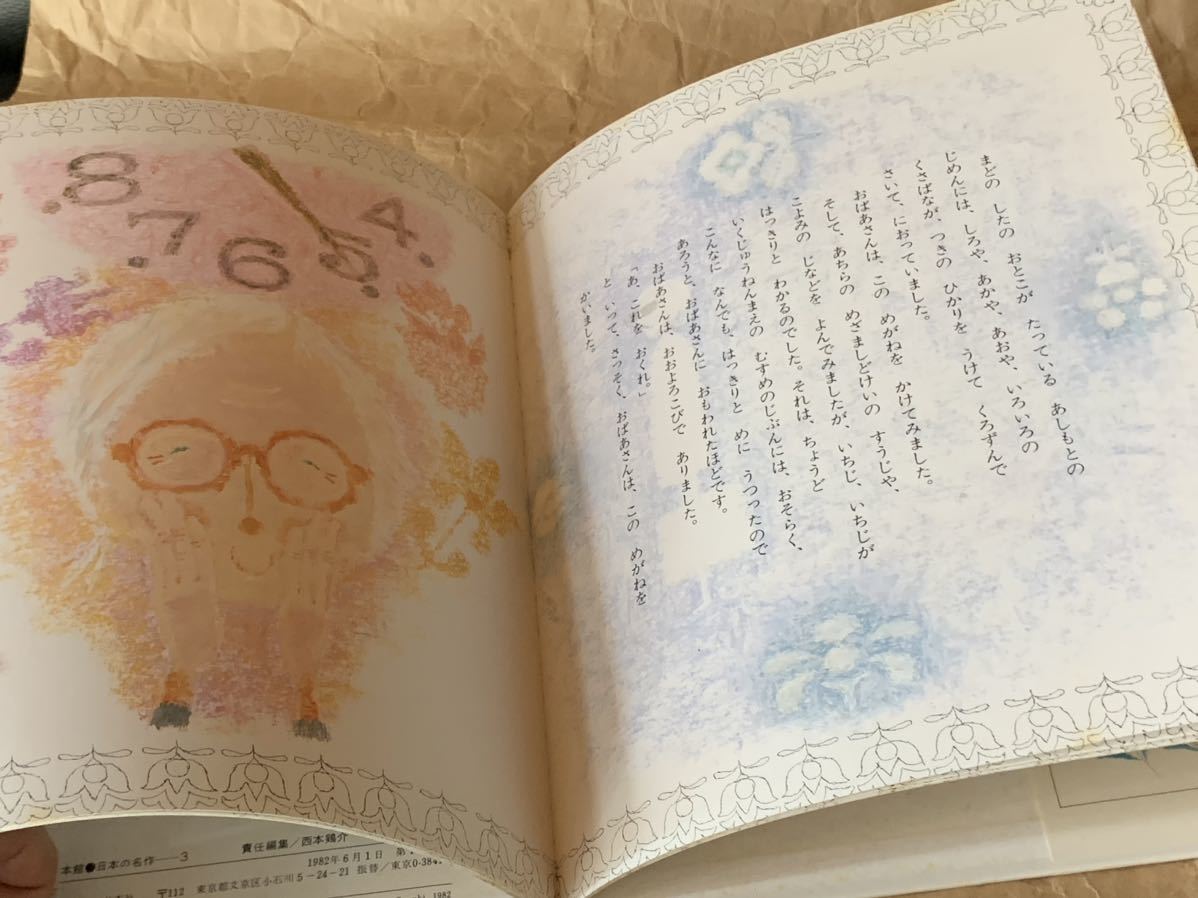 8
7
6
5
4
まどの したの おとこが たっている あしもとの
じめんには、しろや、あかや、あおや、いろいろの
くさばなが、つきの ひかりを うけて くろずんで
さいて、におっていました。
おばあさんは、この めがねを かけてみました。
そして、あちらの めざましどけいの すうじや、
こよみの じなどを よんでみましたが、いちじ、いちじが
はっきりと わかるのでした。それは、ちょうど
いくじゅうねんまえの むすめのじぶんには、おそらく、
こんなに なんでも、はっきりと めに うつったので
あろうと、おばあさんに おもわれたほどです。
おばあさんは、おおよろこびで ありました。
「あ、これを おくれ。」
と いって、さっそく、おばあさんは、この めがねを
かいました。
本館●日本の名作——3
責任編集/西本鶏介
1982年6月1日 第
〒112 東京都文京区小石川5-24-21 振替/東京0-384
1982